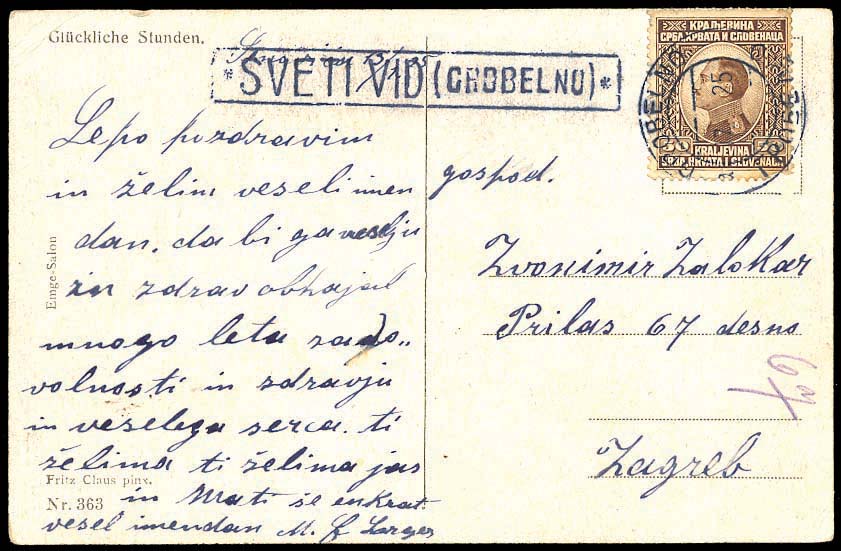 Glückliche Stunden.
* SVETI VID (GROBELNO) *
КРАЉЕВИНА
СРБА,ХРВАТА И СЛОВЕНАЦА
KRALJEVINA
SRBA,HRVATA I SLOVENACA
GROBELNO
25
Lepo pozdravim
in želim veseli imen
dan. da bi ga veselju
in zdrav obhajal
mnogo leta zado„
volnosti in zdravju
in veselega serca. ti
želima ti želima jas
in Mati še enkrat
vesel imendan M.
Emge-Salon
Fritz Claus pinx.
Nr. 363
gospod.
Zvonimir Zalokar
Prilas 67 desno
Zagreb